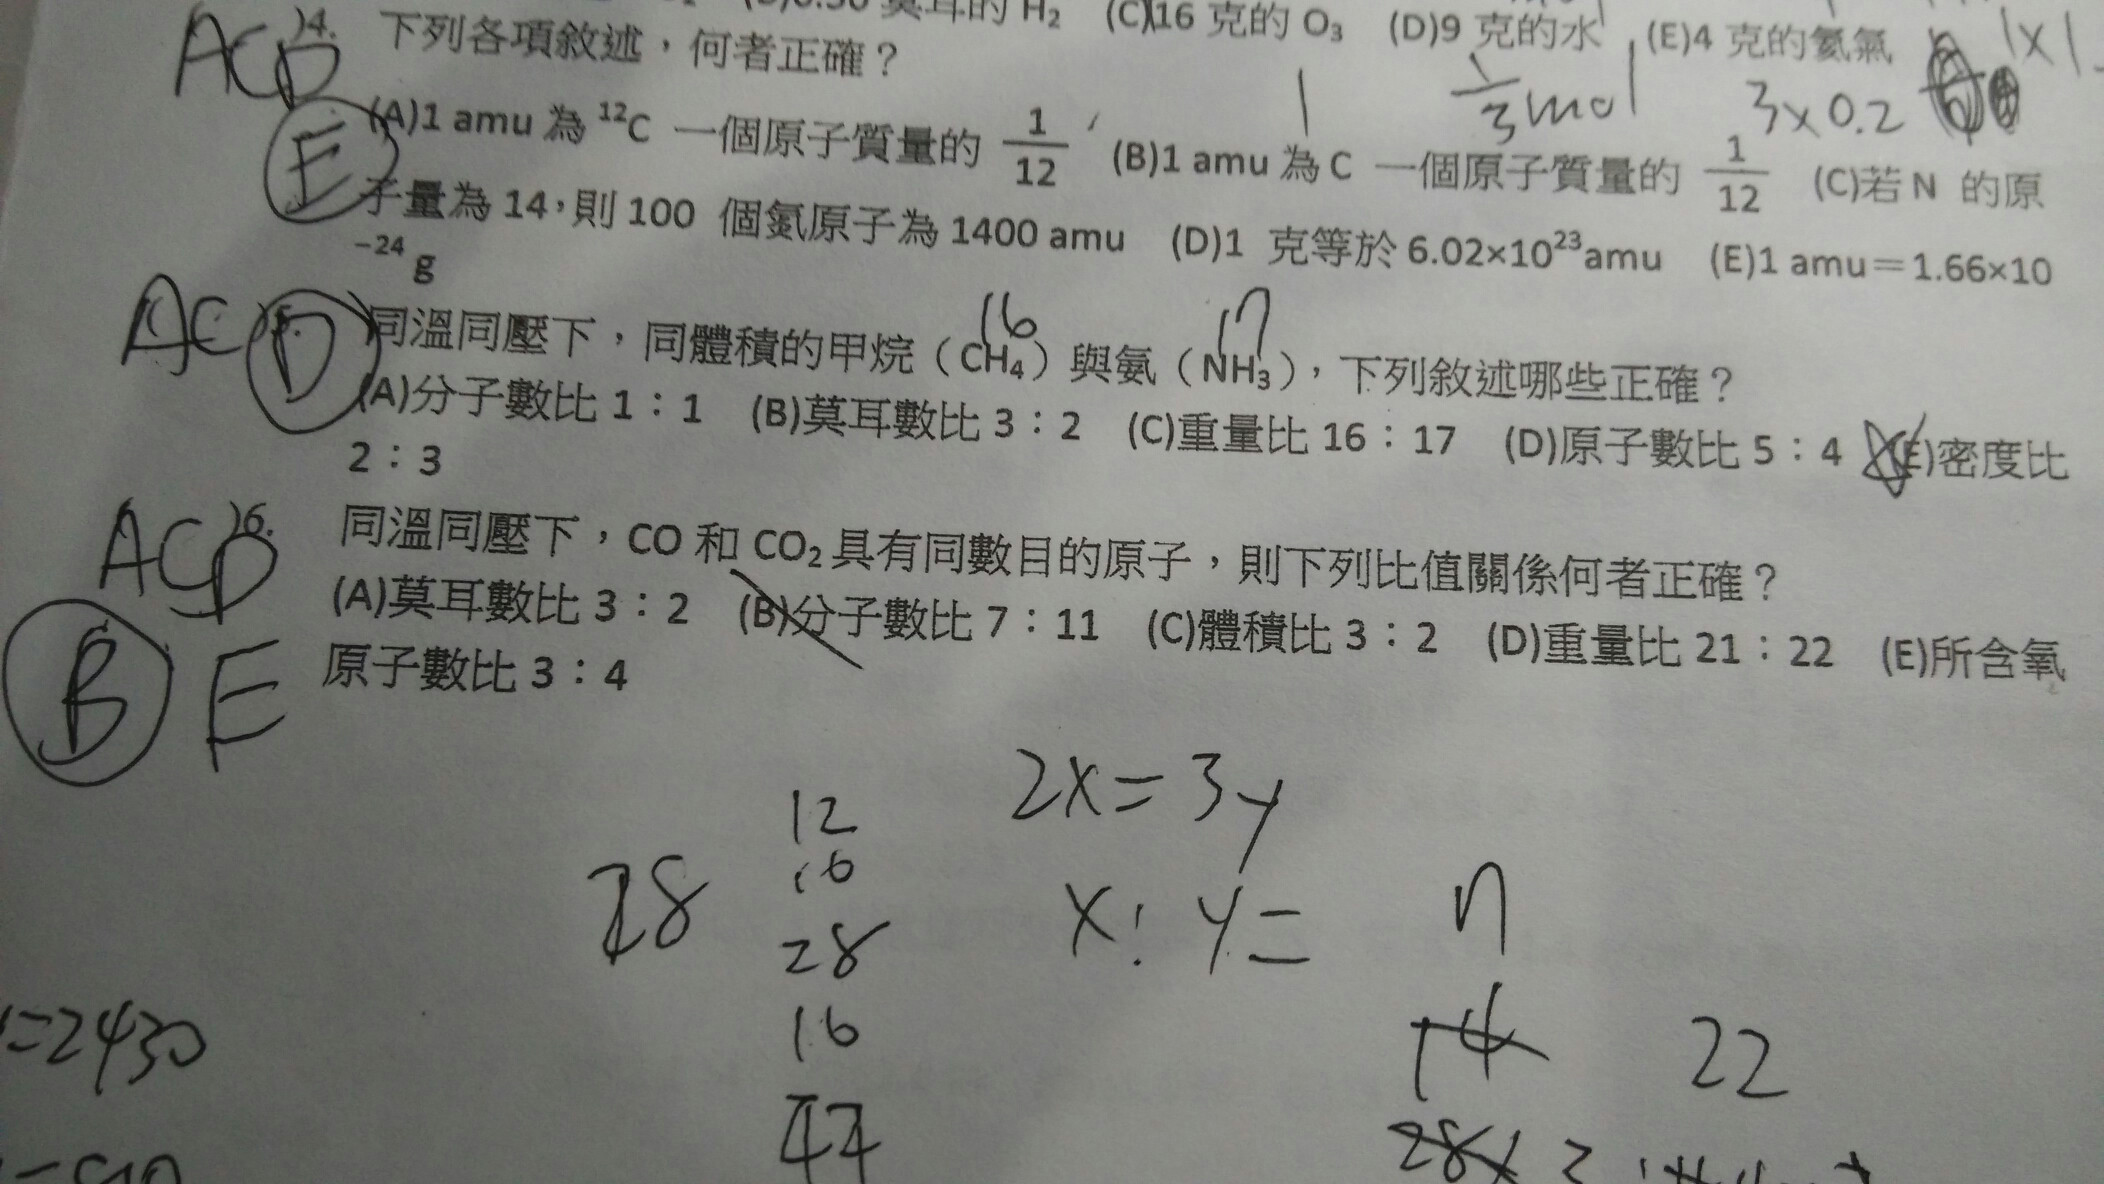 莫耳的 H₂ (C)16 克的 O₃ (D)9 克的水 (E)4 克的氦氣
1/3 mol 3×0.2
1×1
ACD )4. 下列各項敘述，何者正確？
E (A)1 amu 為 ¹²C 一個原子質量的 1/12 (B)1 amu 為 C 一個原子質量的 1/12 (C)若 N 的原
子量為 14，則 100 個氮原子為 1400 amu (D)1 克等於 6.02×10²³amu (E)1 amu＝1.66×10
⁻²⁴ g
16 17
AC D )5. 同溫同壓下，同體積的甲烷（CH₄）與氨（NH₃），下列敘述哪些正確？
(A)分子數比 1：1 (B)莫耳數比 3：2 (C)重量比 16：17 (D)原子數比 5：4 (E)密度比
2：3
ACD )6. 同溫同壓下，CO 和 CO₂ 具有同數目的原子，則下列比值關係何者正確？
(A)莫耳數比 3：2 (B)分子數比 7：11 (C)體積比 3：2 (D)重量比 21：22 (E)所含氧
B E 原子數比 3：4
2x=3y
12
16
28 28
x:y= n
16
14 22
=2430
44
28×3